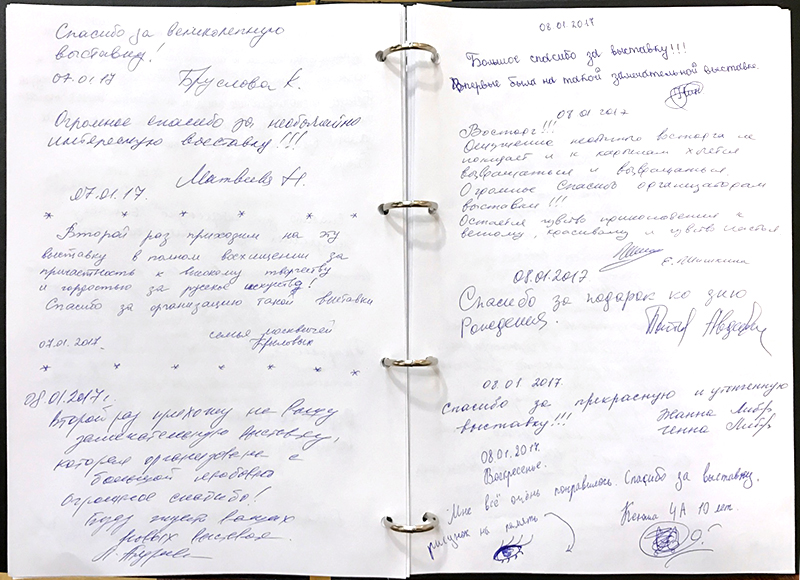 Спасибо за великолепную
выставку!
07.01.17 Бруслова К.
Огромное спасибо за необычайно
интересную выставку!!!
Матвиив Н.
07.01.17.
* * * * * *
Второй раз приходим на эту
выставку в полном восхищении за
причастность к высокому творчеству
и гордостью за русское искусство!
Спасибо за организацию такой выставки
семья москвичей
07.01.2017. Крыловых
* * * * * *
08.01.2017г.
Второй раз прихожу на Вашу
замечательную выставку,
которая организована с
большой любовью
Огромное спасибо!
Буду ждать Ваших
новых выставок.
08.01.2017
Большое спасибо за выставку!!!
Впервые была на такой замечательной выставке.
08 01 2017
Восторг!!!
Ощущение необычного восторга не
покидает и к картинам хочется
возвращаться и возвращаться.
Огромное Спасибо организаторам
выставки!!!
Остаётся чувство прикосновения к
вечному, красивому и чувство счастья
Е. Шишкина
08.01.2017
Спасибо за подарок ко дню
Рождения.
08 01 2017.
Спасибо за прекрасную и утонченную
выставку!!! Жанна Либр
Генна Либр
08.01.2017.
Воскресенье.
Мне всё очень понравилось. Спасибо за выставку.
рисунок на память Ксюша 4А 10 лет.